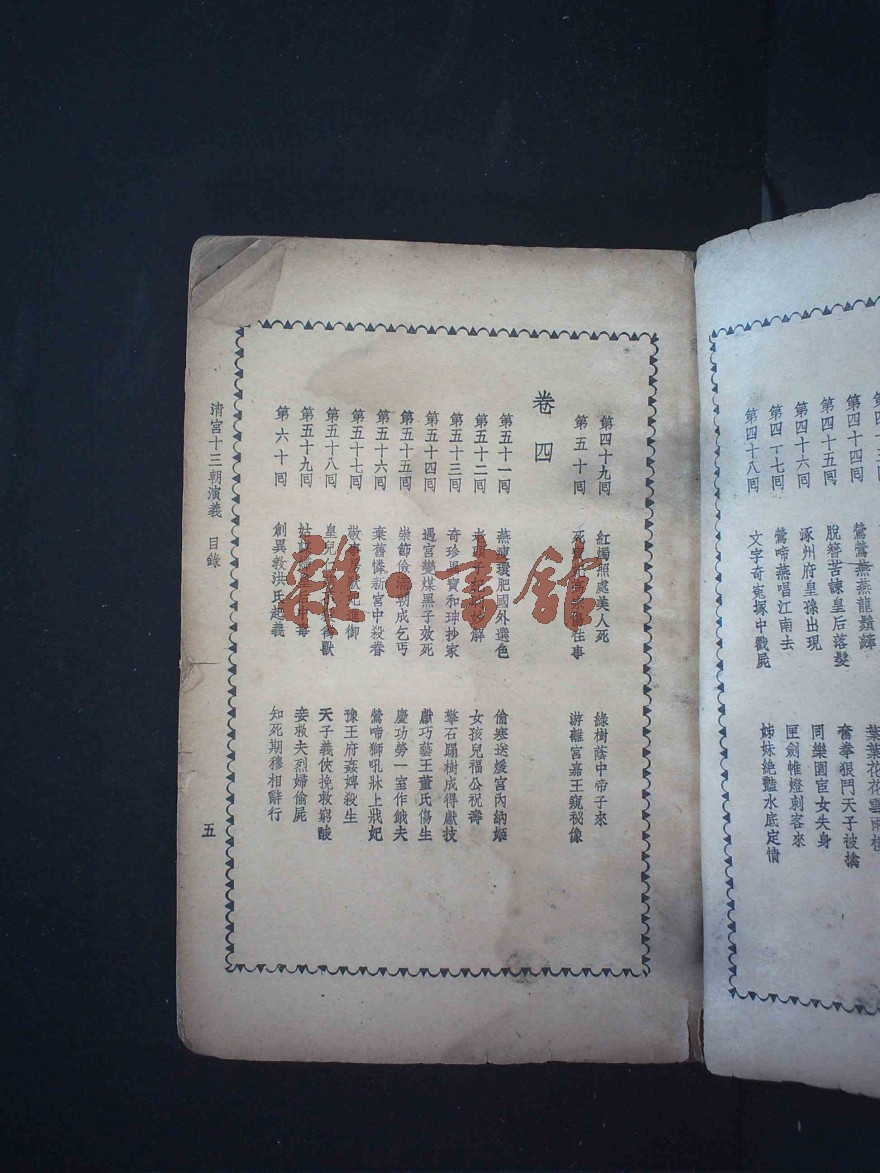 第四十三回
第四十四回 鶯鶯燕燕龍鬚 葉葉花花雲雨
第四十五回 脫簪苦諫皇后落髮 奮拳狠鬥天子被擒
第四十六回 涿州府皇孫出現 同樂園宦女失身
第四十七回 鶯啼燕唱江南去 匣劍帷燈刺客來
第四十八回 文字奇寃塚中戮屍 姊妹絶豔水底定情
第四十九回 紅燭照處美人死 綠樹蔭中帝子來
第五十回 死 往事 游離宮嘉王窺秘像
卷四
第五十一回 燕瘦環肥國外選色 偸寒送煖宮內納姬
第五十二回 解 女孩兒福公祝壽
第五十三回 奇珍異寶和珅抄家 擎石蹋樹成得獻技
第五十四回 遇宮變煤黑子效死 獻巧藝王董氏傷生
第五十五回 崇節儉 成乞丐 慶功勞一室作餓夫
第五十六回 棄舊憐新宮中殺眷 鶯啼獅吼牀上戕妃
第五十七回 敬事房 御 豫王府姦婢殺生
第五十八回 皇兒仁 獸 天子義俠挽救窮酸
第五十九回 姑 毒 妾救夫烈婦偸屍
第六十回 創異敎洪氏起義 知死期穆相辭行
清宮十三朝演義 目錄
五
雜·書舘